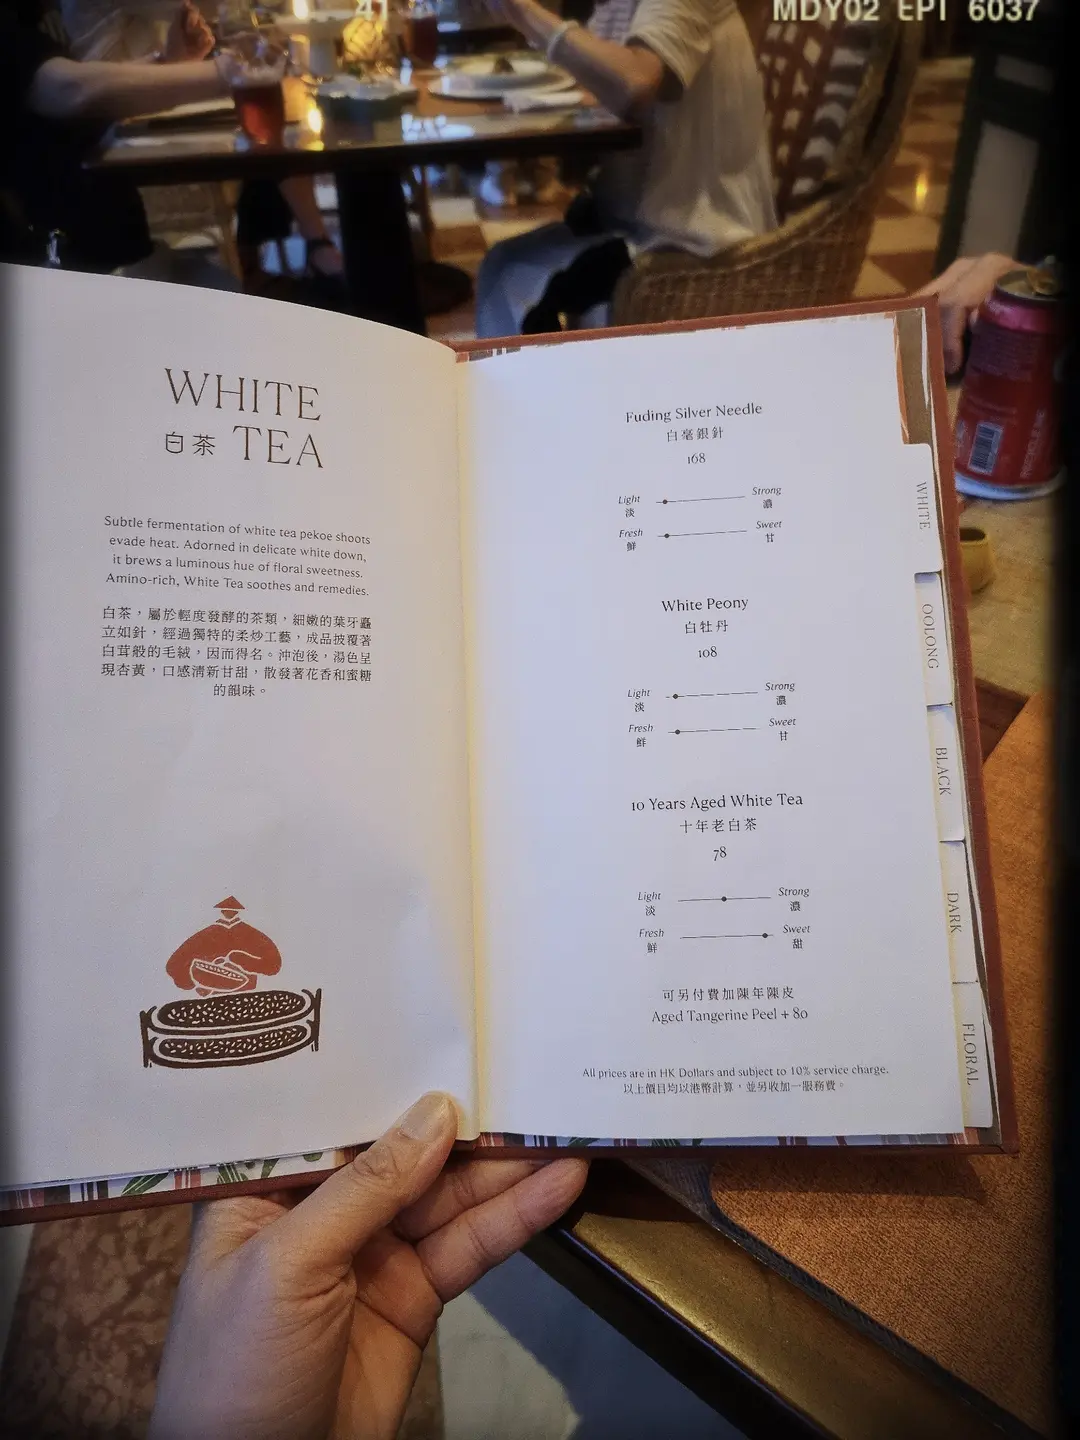 41
MDY02 EPI 6037
WHITE
白茶 TEA
Subtle fermentation of white tea pekoe shoots
evade heat. Adorned in delicate white down,
it brews a luminous hue of floral sweetness.
Amino-rich, White Tea soothes and remedies.
白茶，屬於輕度發酵的茶類，細嫩的葉牙矗
立如針，經過獨特的柔炒工藝，成品披覆著
白茸般的毛絨，因而得名。沖泡後，湯色呈
現杏黃，口感清新甘甜，散發著花香和蜜糖
的韻味。
Fuding Silver Needle
白毫銀針
168
Light Strong
淡 濃
Fresh Sweet
鮮 甘
White Peony
白牡丹
108
Light Strong
淡 濃
Fresh Sweet
鮮 甘
10 Years Aged White Tea
十年老白茶
78
Light Strong
淡 濃
Fresh Sweet
鮮 甜
可另付費加陳年陳皮
Aged Tangerine Peel + 80
All prices are in HK Dollars and subject to 10% service charge.
以上價目均以港幣計算，並另收加一服務費。
WHITE
OOLONG
BLACK
DARK
FLORAL